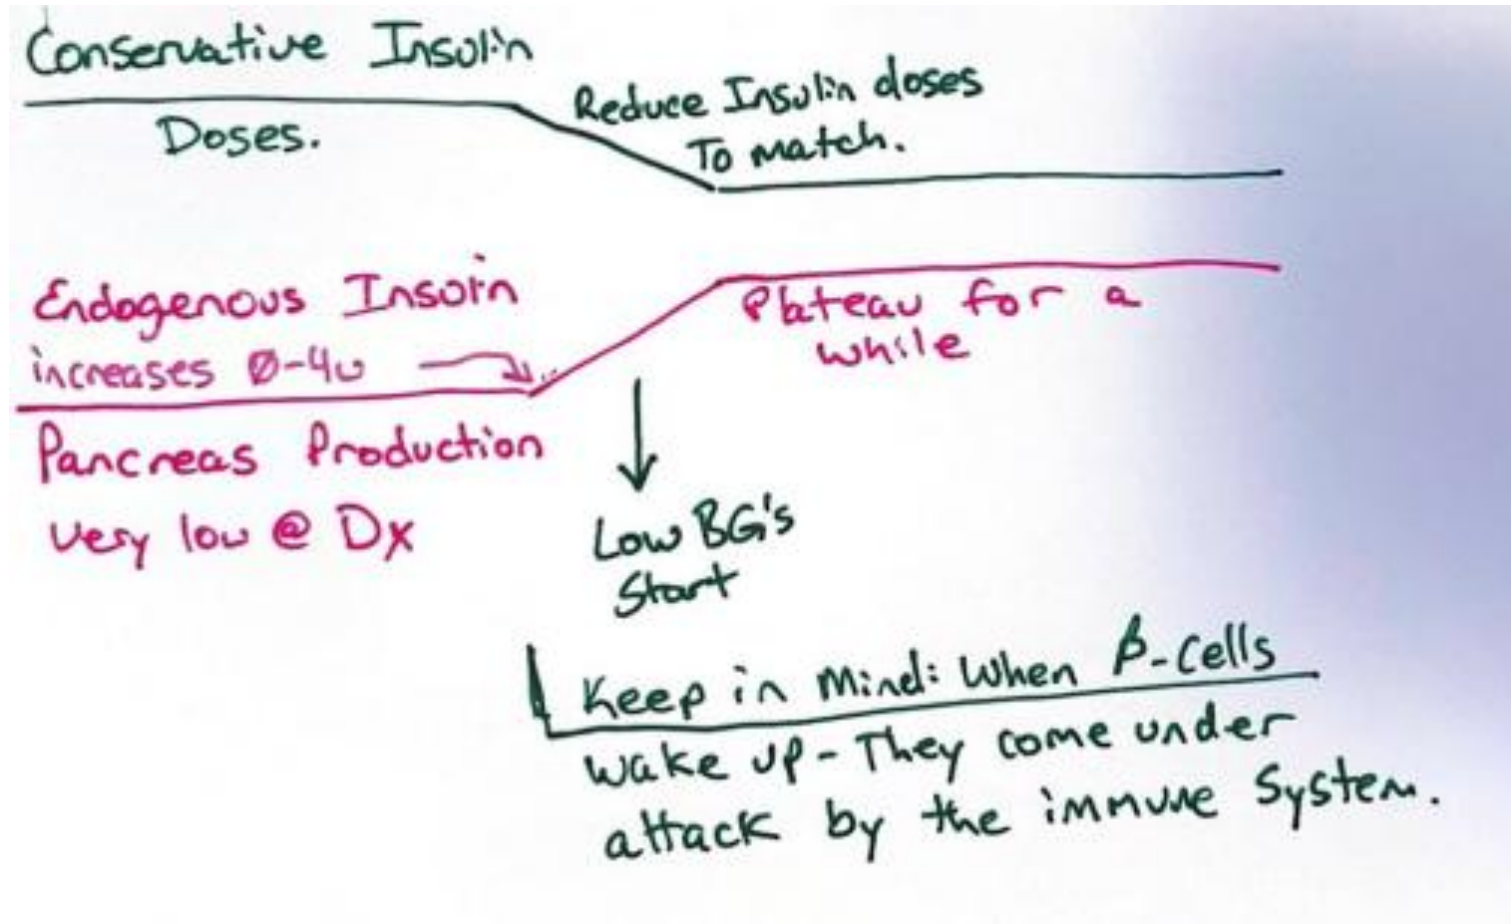 Conservative Insulin
Doses.
Reduce Insulin doses
To match.
Endogenous Insulin
increases 0-4u
Plateau for a
while
Pancreas Production
very low @ Dx
Low BG's
Start
Keep in Mind: When β-cells
wake up - They come under
attack by the immune System.